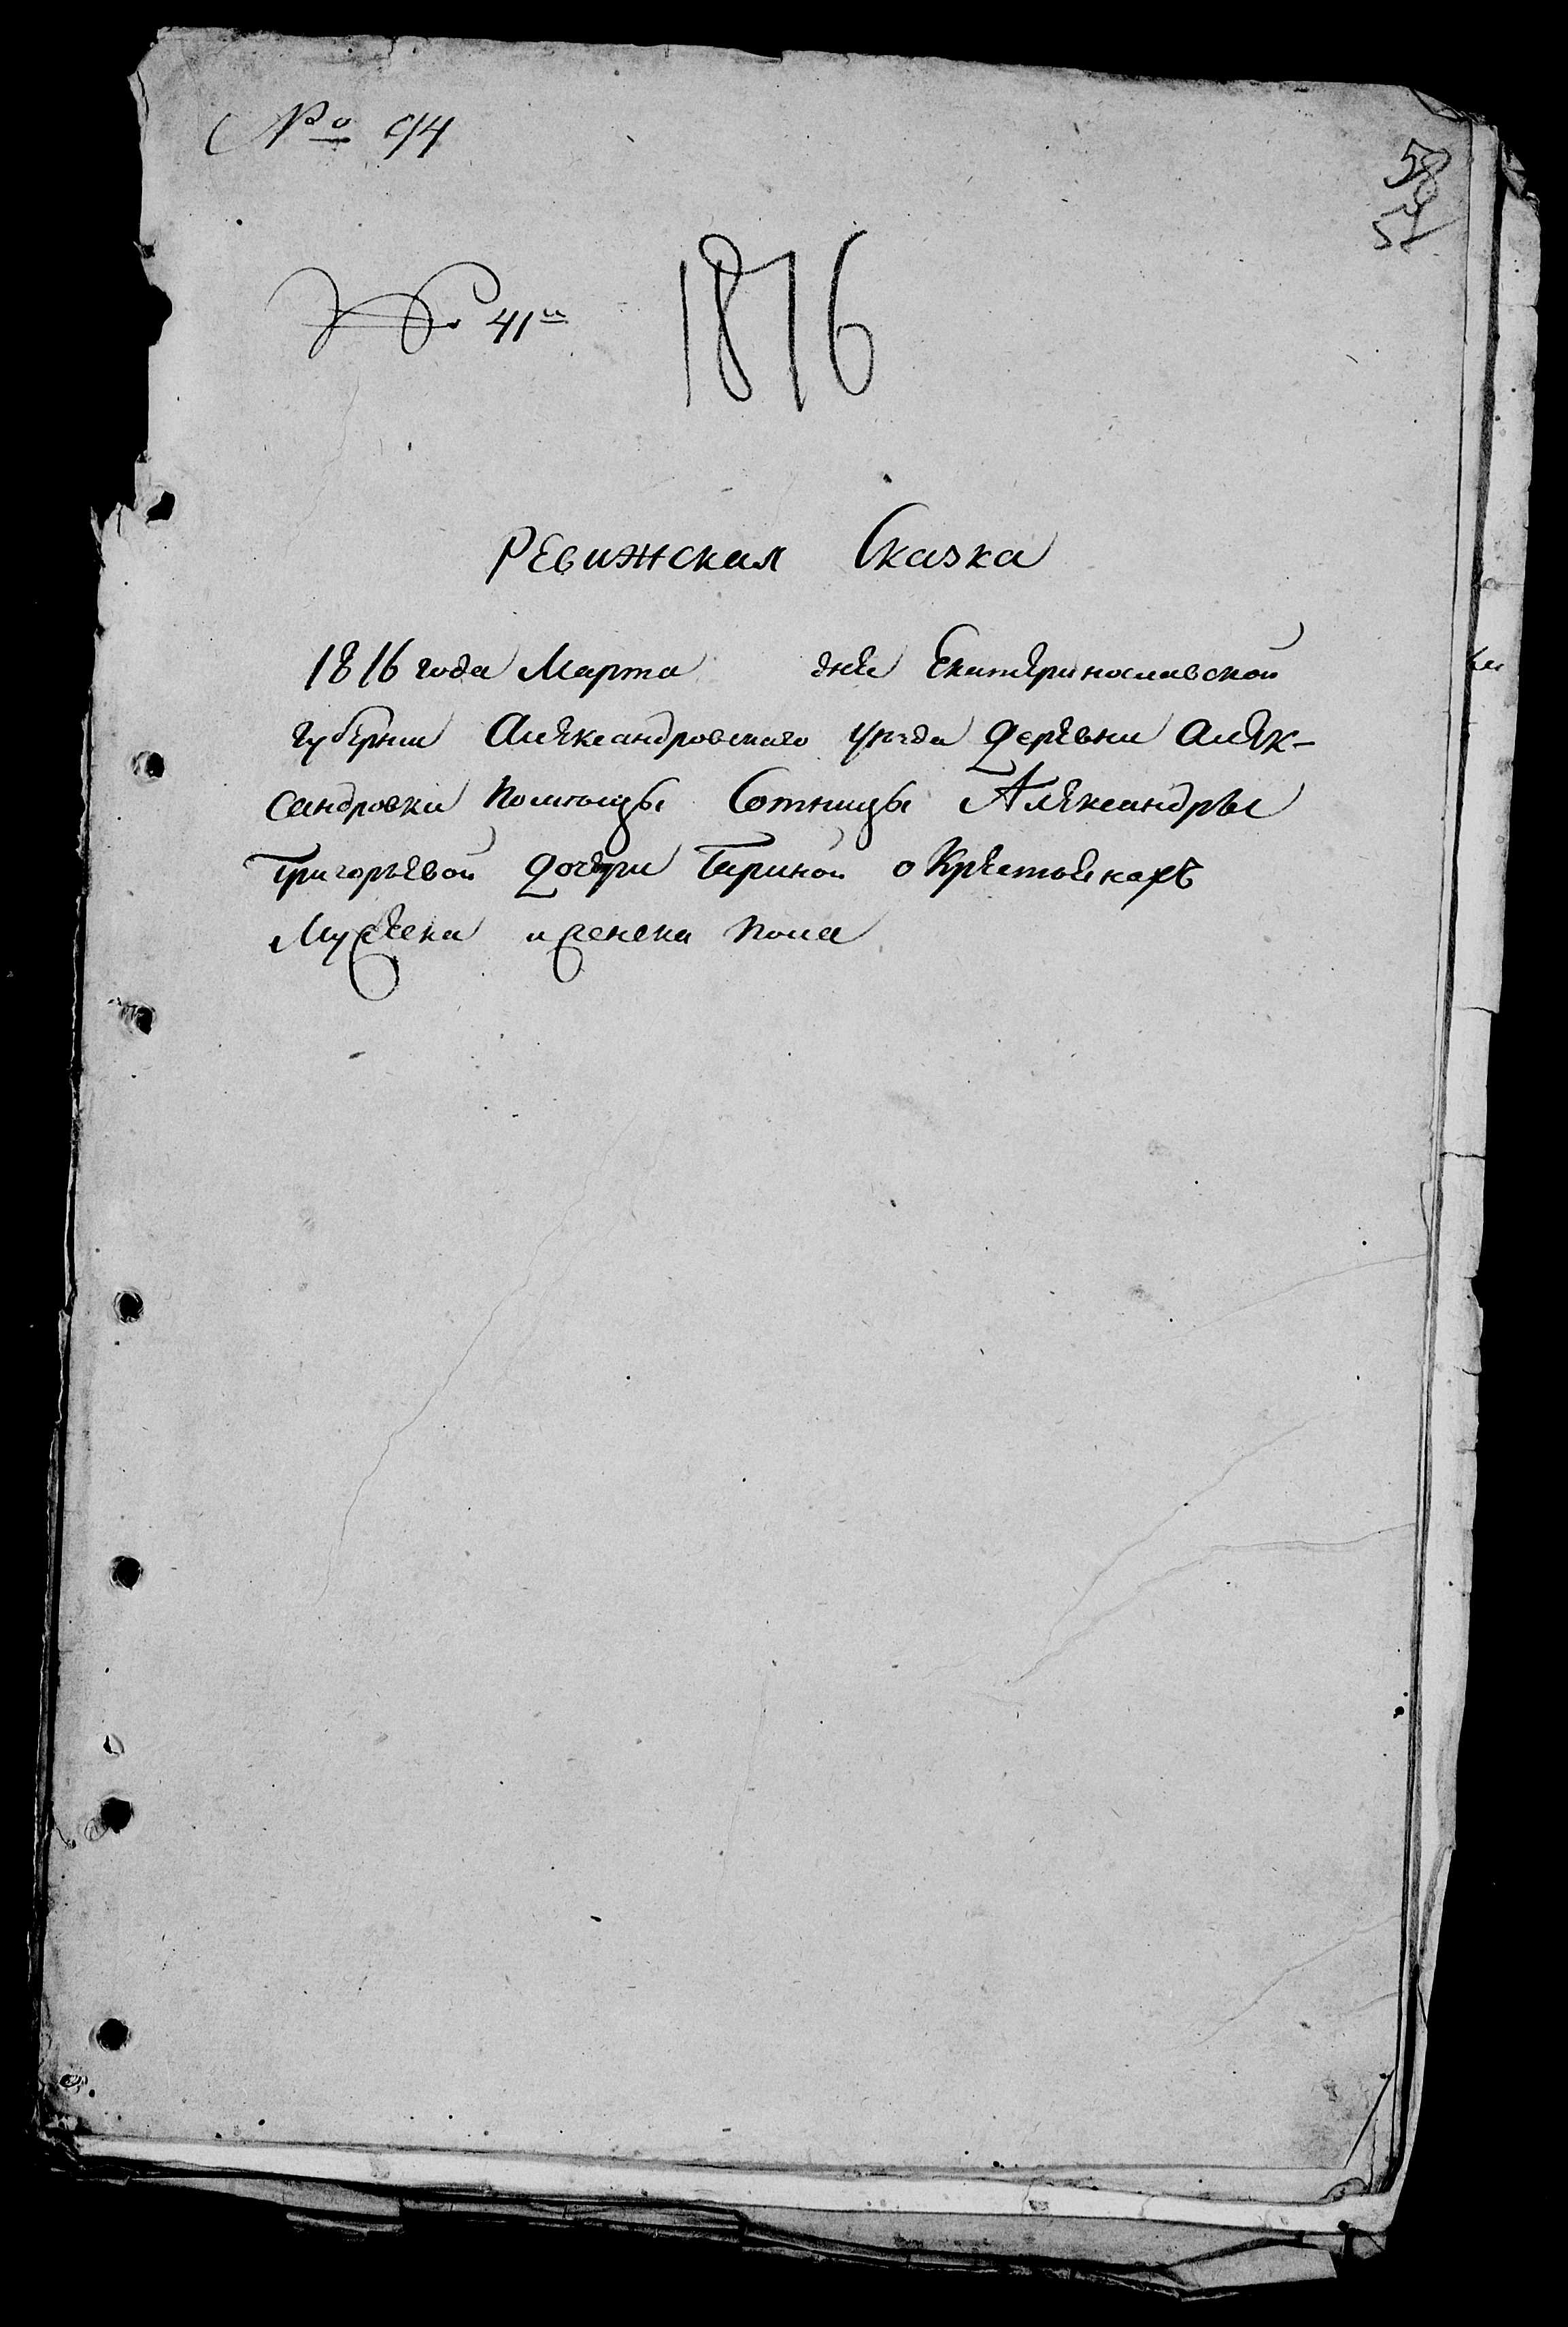 № 94
58
№ 41й
1816
Ревижская Сказка
1816 года Марта дня Екатеринославской
губернии Александровского уезда деревни Алек-
сандровки Помещицы Сотницы Александры
Григорьевой дочери о Крестьянахъ
Мужеска и женска Пола